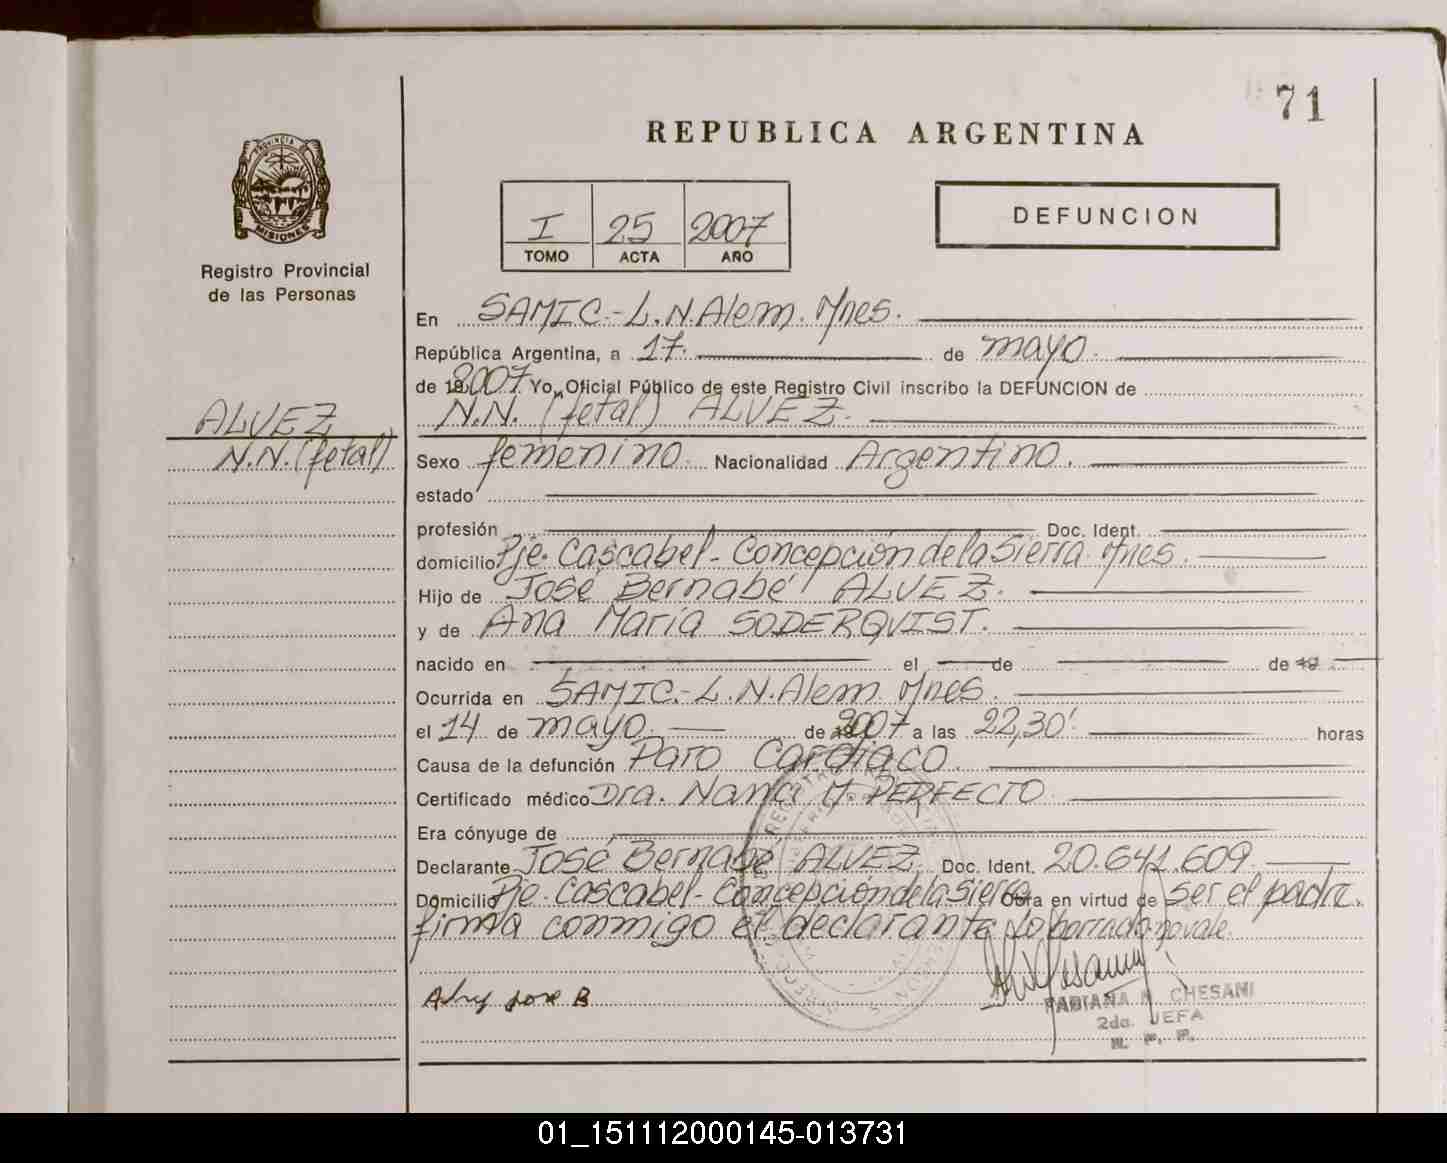 71
REPUBLICA ARGENTINA
PROVINCIA D
MISIONES
Registro Provincial
de las Personas
I 25 2007
TOMO ACTA AÑO
DEFUNCION
En SAMIC.-L.N.Alem. Mnes.
República Argentina, a 17. de mayo.
de 2007 Yo, Oficial Público de este Registro Civil inscribo la DEFUNCION de
N.N. (fetal) ALVEZ.
ALVEZ
N.N. (fetal)
Sexo femenino. Nacionalidad Argentino.
estado
profesión Doc. Ident.
domicilio Pje. Cascabel - Concepción de la Sierra Mnes.
Hijo de José Bernabé ALVEZ.
y de Ana María SODERQVIST.
nacido en el de de 19
Ocurrida en SAMIC.-L.N.Alem Mnes.
el 14 de mayo. de 2007 a las 22,30' horas
Causa de la defunción Paro Cardíaco.
Certificado médico Dra. Nanci M. PERFECTO
Era cónyuge de
Declarante José Bernabé ALVEZ Doc. Ident. 20.641.609
Domicilio Pje. Cascabel - Concepción de la Sierra Obra en virtud de ser el padre,
firma conmigo el declarante Lo borrado no vale.
José B
FABIANA CHESANI
2da. JEFA
R. P. P.
01_151112000145-013731